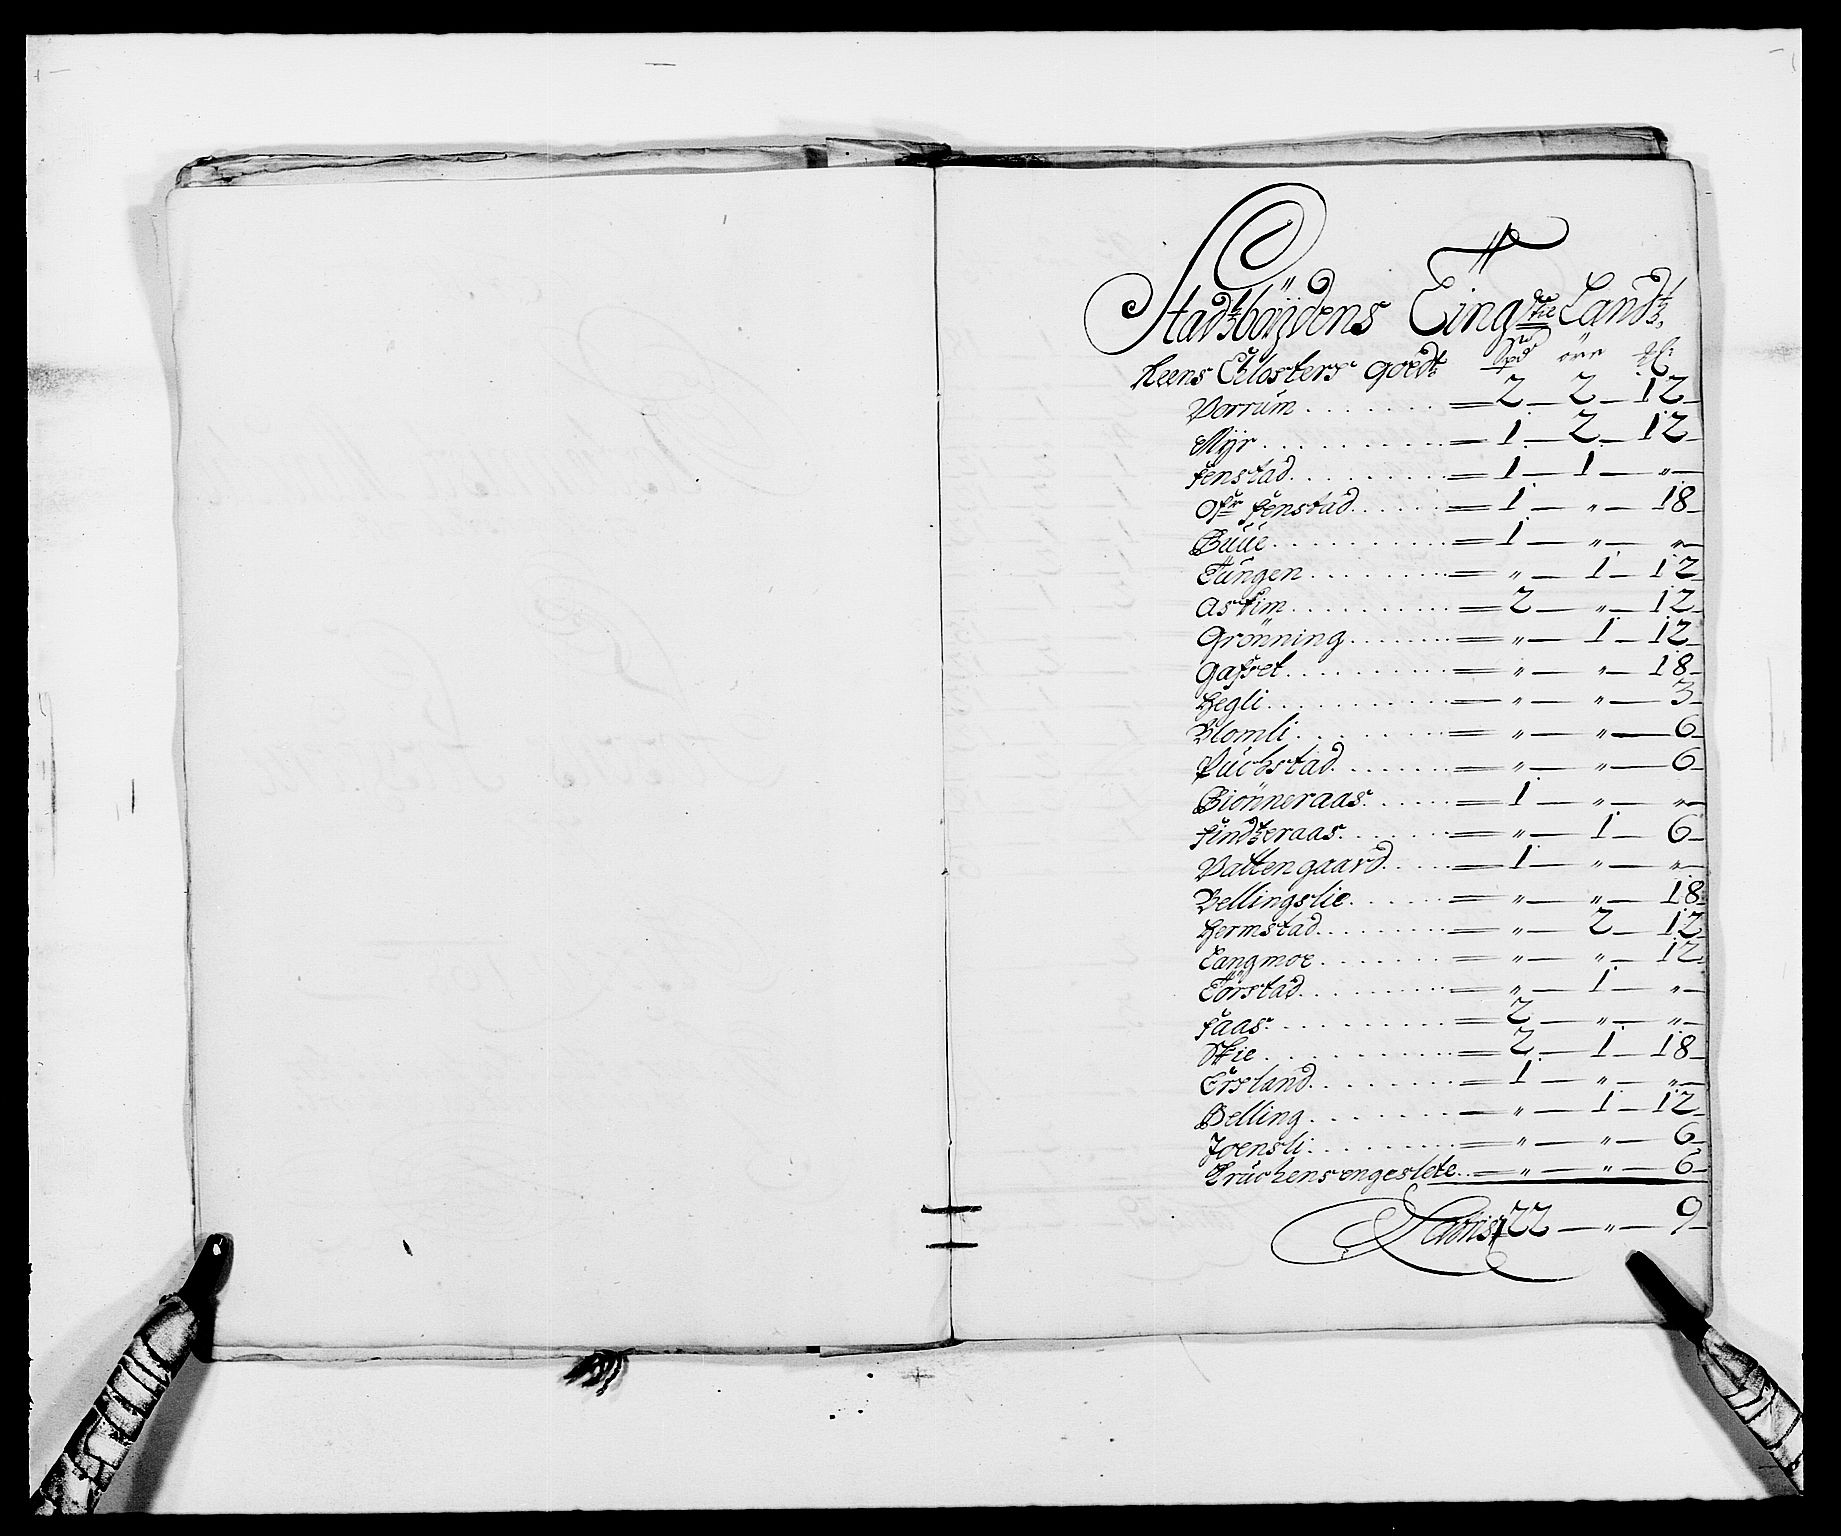 Stadzböydens Ting stie Landz
Reens Closters goedt Spd öre ℳ
Vorrum . . . . . = 2 — 2 — 12 —
Myr . . . . . = 1 — 2 — 12 —
fenstad . . . . . = 1 — 1 — „ —
Ofr fenstad . . . . . = 1 — „ — 18 —
Buue . . . . . = 1 — „ — „ —
Tungen . . . . . = „ — 1 — 12 —
Askim . . . . . = 2 — „ — 12 —
Grönning . . . . . = „ — 1 — 12 —
Gafset . . . . . = „ — „ — 18 —
Hegli . . . . . = „ — „ — 3 —
Blomli . . . . . = „ — „ — 6 —
Puchstad . . . . . = „ — „ — 6 —
Biönneraas . . . . . = 1 — „ — „ —
findzeraas . . . . . = „ — 1 — 6 —
Vattengaard . . . . . = 1 — „ — „ —
Vellingslie . . . . . = „ — „ — 18 —
Hermstad . . . . . = „ — 2 — 12 —
Langmoe . . . . . = „ — „ — 12 —
Törstad . . . . . = „ — 1 — „ —
faas . . . . . = 2 — „ — „ —
Skie . . . . . = 2 — 1 — 18 —
Ersland . . . . . = 1 — „ — „ —
Belling . . . . . = „ — 1 — 12 —
Joensli . . . . . = „ — „ — 6 —
Kruchens engeslete . . = „ — „ — 6 —
22 — „ — 9 —